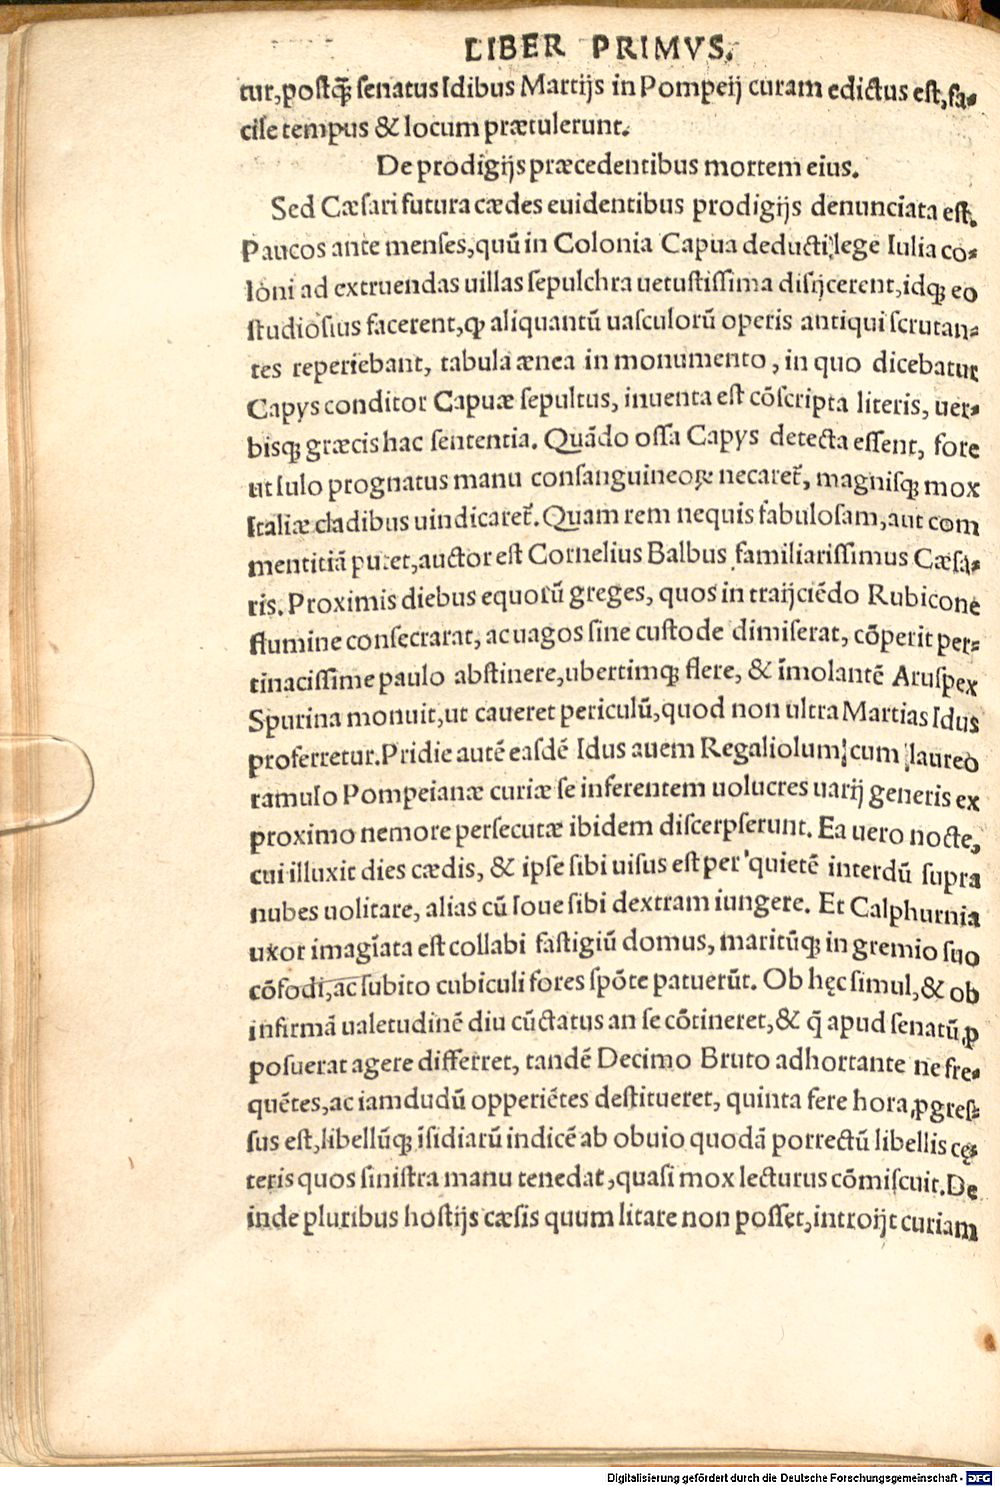 LIBER PRIMVS.
tur, postq̃ senatus Idibus Martijs in Pompeij curam edictus est, fa-
cile tempus & locum prætulerunt.
De prodigijs præcedentibus mortem eius.
Sed Cæsari futura cædes euidentibus prodigijs denunciata est.
Paucos ante menses, quũ in Colonia Capua deducti lege Iulia co-
loni ad extruendas uillas sepulchra uetustissima disijcerent, idq; eo
studiosius facerent, ꝙ aliquantũ uasculorũ operis antiqui scrutan-
tes reperiebant, tabula ænea in monumento, in quo dicebatur
Capys conditor Capuæ sepultus, inuenta est cõscripta literis, uer-
bisq; græcis hac sententia. Quãdo ossa Capys detecta essent, fore
ut Iulo prognatus manu consanguineoꝝ necaret̃, magnisq; mox
Italiæ cladibus uindicaret̃. Quam rem nequis fabulosam, aut com
mentitiã putet, auctor est Cornelius Balbus familiarissimus Cæsa-
ris. Proximis diebus equorũ greges, quos in traijciẽdo Rubicone
flumine consecrarat, ac uagos sine custode dimiserat, cõperit per-
tinacissime paulo abstinere, ubertimq; flere, & ĩmolantẽ Aruspex
Spurina monuit, ut caueret periculũ, quod non ultra Martias Idus
proferretur. Pridie autẽ easdẽ Idus auem Regaliolum, cum laureo
ramulo Pompeianæ curiæ se inferentem uolucres uarij generis ex
proximo nemore persecutæ ibidem discerpserunt. Ea uero nocte,
cui illuxit dies cædis, & ipse sibi uisus est per quietẽ interdũ supra
nubes uolitare, alias cũ Ioue sibi dextram iungere. Et Calphurnia
uxor imagĩata est collabi fastigiũ domus, maritũq; in gremio suo
cõfodi, ac subito cubiculi fores spõte patuerũt. Ob hęc simul, & ob
infirmã ualetudinẽ diu cũctatus an se cõtineret, & q̃ apud senatũ ꝓ
posuerat agere differret, tandẽ Decimo Bruto adhortante ne fre-
quẽtes, ac iamdudũ opperiẽtes destitueret, quinta fere hora ꝓgres-
sus est, libellũq; ĩsidiarũ indicẽ ab obuio quodã porrectũ libellis cę-
teris quos sinistra manu tenedat, quasi mox lecturus cõmiscuit. De
inde pluribus hostijs cæsis quum litare non posset, introijt curiam
Digitalisierung gefördert durch die Deutsche Forschungsgemeinschaft - DFG